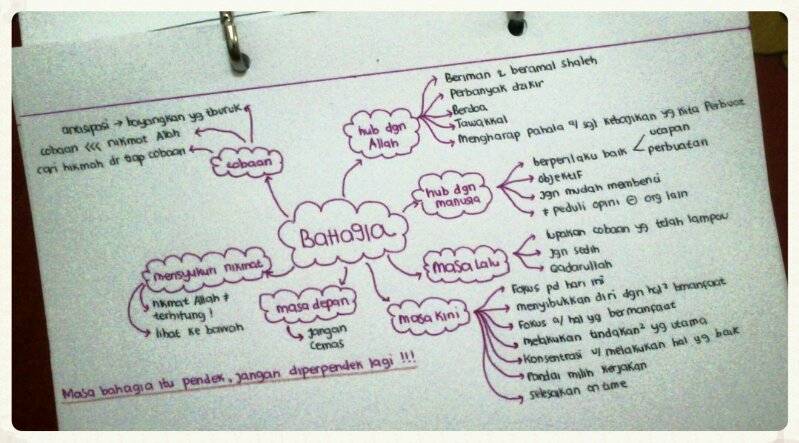 BAHAGIA
cobaan
antisipasi → bayangkan yg tburuk
cobaan <<< nikmat Allah
cari hikmah dr tiap cobaan
hub dgn
Allah
Beriman & beramal shaleh
Perbanyak dzikir
Berdoa
Tawakkal
Mengharap pahala a/ sgl kebajikan yg kita perbuat
hub dgn
manusia
berperilaku baik < ucapan
perbuatan
objektif
jgn mudah membenci
≠ peduli opini ⊖ org lain
masa lalu
lupakan cobaan yg telah lampau
jgn sedih
Qadarullah
masa kini
Fokus pd hari ini
menyibukkan diri dgn hal² bmanfaat
Fokus a/ hal yg bermanfaat
melakukan tindakan² yg utama
Konsentrasi u/ melakukan hal yg baik
Pandai milih kerjakan
selesaikan on time
masa depan
jangan
cemas
mensyukuri nikmat
nikmat Allah ≠
terhitung !
lihat ke bawah
Masa bahagia itu pendek, jangan diperpendek lagi !!!